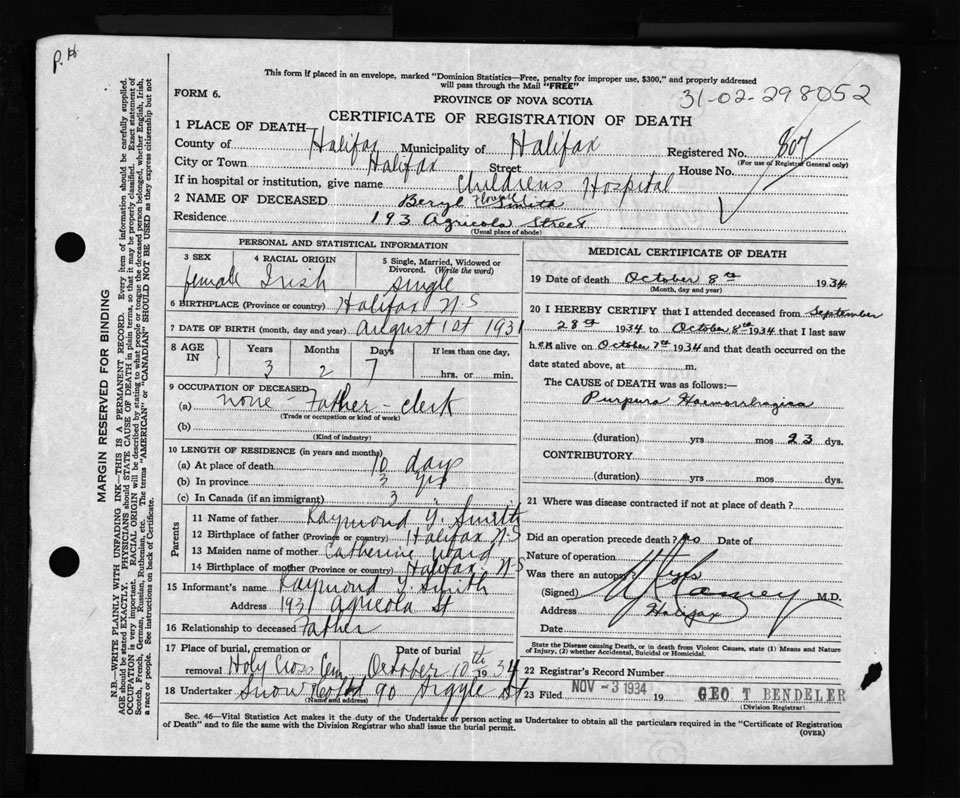 P.H
This form if placed in an envelope, marked "Dominion Statistics—Free, penalty for improper use, $300," and properly addressed
will pass through the Mail "FREE"
FORM 6.
PROVINCE OF NOVA SCOTIA
31-02-298052
CERTIFICATE OF REGISTRATION OF DEATH
1 PLACE OF DEATH—
County of Halifax Municipality of Halifax Registered No. 807
(For use of Registrar General only)
City or Town Halifax Street House No.
If in hospital or institution, give name Childrens Hospital
2 NAME OF DECEASED Beryl Smith
Residence 193 Agricola Street
(Usual place of abode)
PERSONAL AND STATISTICAL INFORMATION
3 SEX 4 RACIAL ORIGIN 5 Single, Married, Widowed or
Divorced. (Write the word)
female Irish single
6 BIRTHPLACE (Province or country) Halifax N.S
7 DATE OF BIRTH (month, day and year) August 1st 1931
8 AGE IN Years Months Days If less than one day,
3 2 7 hrs. or min.
9 OCCUPATION OF DECEASED
(a) none - Father - clerk
(Trade or occupation or kind of work)
(b)
(Kind of industry)
10 LENGTH OF RESIDENCE (in years and months)
(a) At place of death 10 days
(b) In province 3 yrs
(c) In Canada (if an immigrant) 3 "
Parents
11 Name of father Raymond Y. Smith
12 Birthplace of father (Province or country) Halifax N.S
13 Maiden name of mother Catherine Ward
14 Birthplace of mother (Province or country) Halifax N-S
15 Informant's name Raymond Y. Smith
Address 193 Agricola St
16 Relationship to deceased Father
17 Place of burial, cremation or removal Date of burial
Holy Cross Cem October 10th 1934
18 Undertaker Snow & Co Ltd 90 Argyle St
(Name and address)
MEDICAL CERTIFICATE OF DEATH
19 Date of death October 8th 1934
(Month, day and year)
20 I HEREBY CERTIFY that I attended deceased from September
28th 1934 to October 8th 1934 that I last saw
her alive on October 7th 1934 and that death occurred on the
date stated above, at m.
The CAUSE of DEATH was as follows:—
Purpura Haemorrhagica
(duration) yrs mos 23 dys.
CONTRIBUTORY
(duration) yrs mos dys.
21 Where was disease contracted if not at place of death?
Did an operation precede death? no Date of
Nature of operation
Was there an autopsy? yes
(Signed) M.D.
Address Halifax
Date
State the Disease causing Death, or in death from Violent Causes, state (1) Means and Nature
of Injury, (2) whether Accidental, Suicidal or Homicidal.
22 Registrar's Record Number
23 Filed NOV -3 1934 19 GEO T BENDELER
(Division Registrar)
Sec. 46—Vital Statistics Act makes it the duty of the Undertaker or person acting as Undertaker to obtain all the particulars required in the "Certificate of Registration
of Death" and to file the same with the Division Registrar who shall issue the burial permit.
(OVER)
MARGIN RESERVED FOR BINDING
N.B.—WRITE PLAINLY WITH UNFADING INK—THIS IS A PERMANENT RECORD. Every item of information should be carefully supplied.
AGE should be stated EXACTLY. PHYSICIANS should STATE CAUSE OF DEATH in plain terms, so that it may be properly classified. Exact statement of
OCCUPATION is very important. RACIAL ORIGIN will be described by stating to what people or tongue the deceased person belonged, whether English, Irish,
Scotch, French, German, Russian, Ruthenian, etc. The terms "AMERICAN" or "CANADIAN" SHOULD NOT BE USED as they express citizenship but not
a race or people. See instructions on back of Certificate.